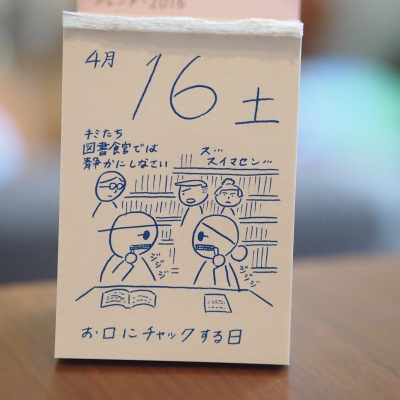 カレンダー2016
4月
16
土
キミたち
図書館では
静かにしなさい
ス…
スイマセン…
ジジジ
ジジジ
お口にチャックする日